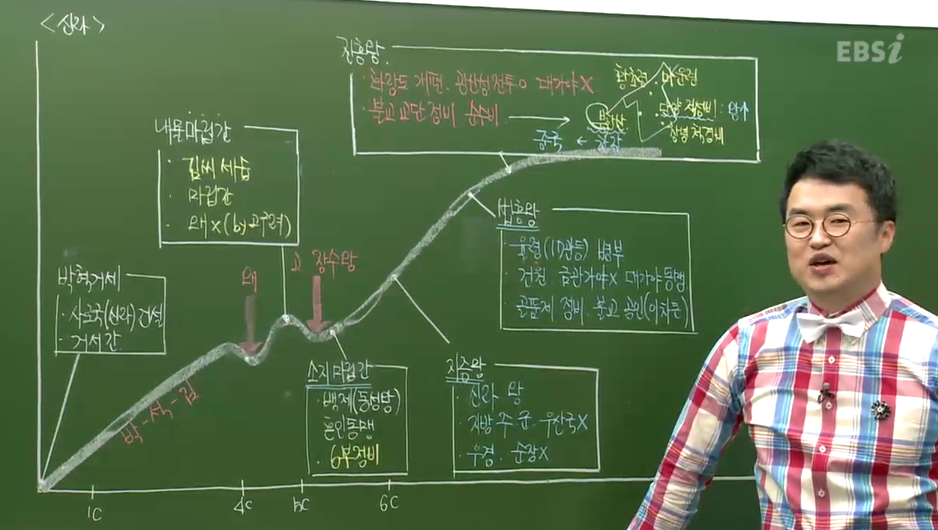 <신라>
EBSi
진흥왕
· 화랑도 개편. 관산성전투○ 대가야X
· 불교 교단 정비 순수비
황초령 마운령
북한산 단양 적성비:
창녕 척경비
중국 ←
내물마립간
· 김씨 세습
· 마립간
· 왜X(by 고구려)
박혁거세
· 사로국(신라) 건설
· 거서간
왜
고 장수왕
법흥왕
· 율령(17관등) 병부
· 건원 금관가야X 대가야 동맹
· 골품제 정비. 불교 공인(이차돈)
박-석-김
소지마립간
· 백제(동성왕)
혼인동맹
· 6부정비
지증왕
· 신라 왕
· 지방 주·군. 우산국X
· 우경. 순장X
1C 4C 5C 6C